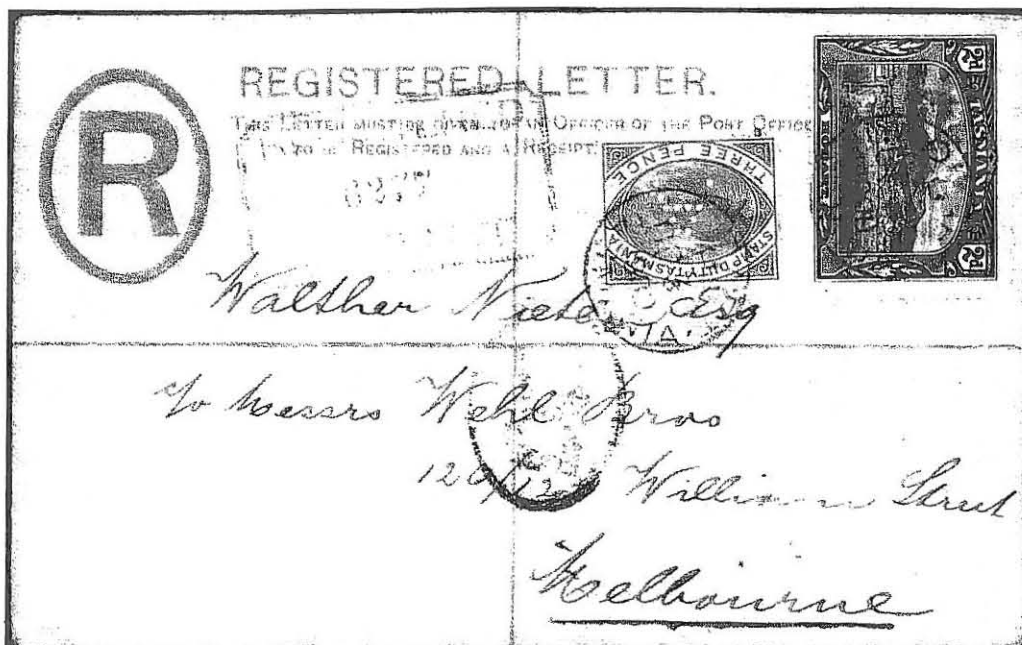 REGISTERED LETTER.
THIS LETTER MUST BE GIVEN TO AN OFFICER OF THE POST OFFICE
TO BE REGISTERED AND A RECEIPT
R
THREE PENCE
STAMP DUTY TASMANIA
2d. TASMANIA 2d.
Walther Esq
c/o Messrs Wehl Bros
William Street
Melbourne